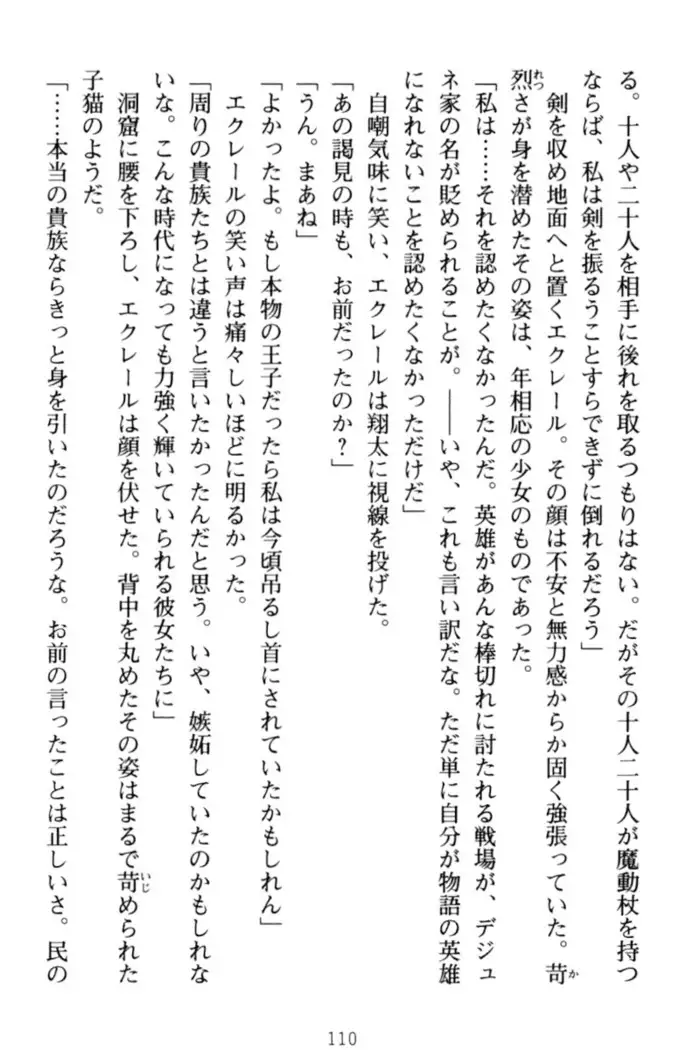 る。十人や二十人を相手に後れを取るつもりはない。だがその十人二十人が魔動杖を持つ
ならば、私は剣を振るうことすらできずに倒れるだろう」
　剣を収め地面へと置くエクレール。その顔は不安と無力感からか固く強張っていた。苛
烈さが身を潜めたその姿は、年相応の少女のものであった。
「私は……それを認めたくなかったんだ。英雄があんな棒切れに討たれる戦場が、デジュ
ネ家の名が貶められることが。――いや、これも言い訳だな。ただ単に自分が物語の英雄
になれないことを認めたくなかっただけだ」
　自嘲気味に笑い、エクレールは翔太に視線を投げた。
「あの謁見の時も、お前だったのか？」
「うん。まあね」
「よかったよ。もし本物の王子だったら私は今頃吊るし首にされていたかもしれん」
　エクレールの笑い声は痛々しいほどに明るかった。
「周りの貴族たちとは違うと言いたかったんだと思う。いや、嫉妬していたのかもしれな
いな。こんな時代になっても力強く輝いていられる彼女たちに」
　洞窟に腰を下ろし、エクレールは顔を伏せた。背中を丸めたその姿はまるで苛められた
子猫のようだ。
「……本当の貴族ならきっと身を引いたのだろうな。お前の言ったことは正しいさ。民の
か
れつ
いじ
110